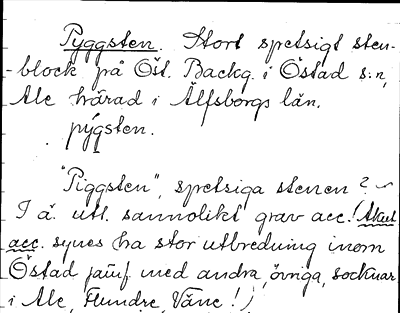 Pyggsten. Stort spetsigt sten-
block på Öst. Backg. i Östad s:n,
Ale härad i Älfsborgs län.
pýgsten.
"Piggsten", spetsiga stenen?
I ä. utt. sannolikt grav acc. (Akut
acc. synes ha stor utbredning inom
Östad jämf. med andra, övriga, socknar
i Ale, Flundre, Väne!)